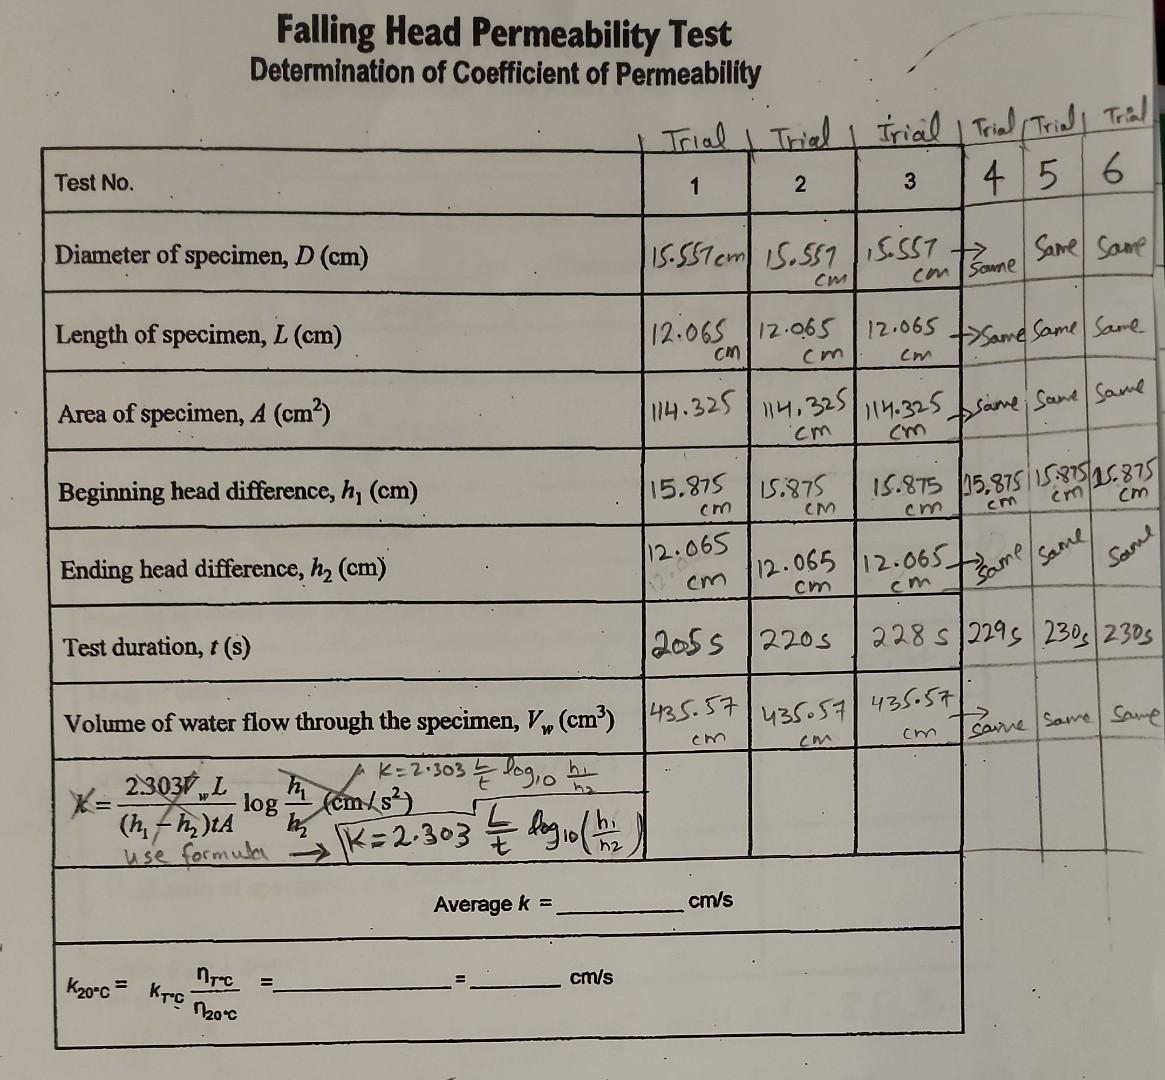 Falling Head Permeability Test
Determination of Coefficient of Permeability
Trial Trial Trial Trial Trial Trial
Test No. 1 2 3 4 5 6
Diameter of specimen, D (cm) 15.557 cm 15.557 cm 15.557 cm → Same Same Same
Length of specimen, L (cm) 12.065 cm 12.065 cm 12.065 cm → Same Same Same
Area of specimen, A (cm²) 114.325 114.325 cm 114.325 cm → Same Same Same
Beginning head difference, h₁ (cm) 15.875 cm 15.875 cm 15.875 cm 15.875 cm 15.875 cm 15.875 cm
Ending head difference, h₂ (cm) 12.065 cm 12.065 cm 12.065 cm → Same Same Same
Test duration, t (s) 205 s 220 s 228 s 229 s 230 s 230 s
Volume of water flow through the specimen, V_w (cm³) 435.57 cm 435.57 cm 435.57 cm → Same Same Same
K = 2.303 L/t log₁₀ h₁/h₂
K = 2.303V_wL/(h₁ – h₂)tA log h₁/h₂ (cm/s²)
use formula → K = 2.303 L/t log₁₀ (h₁/h₂)
Average k = ________ cm/s
k₂₀°C = k_T°C η_T°C/η₂₀°C = ________ = ________ cm/s